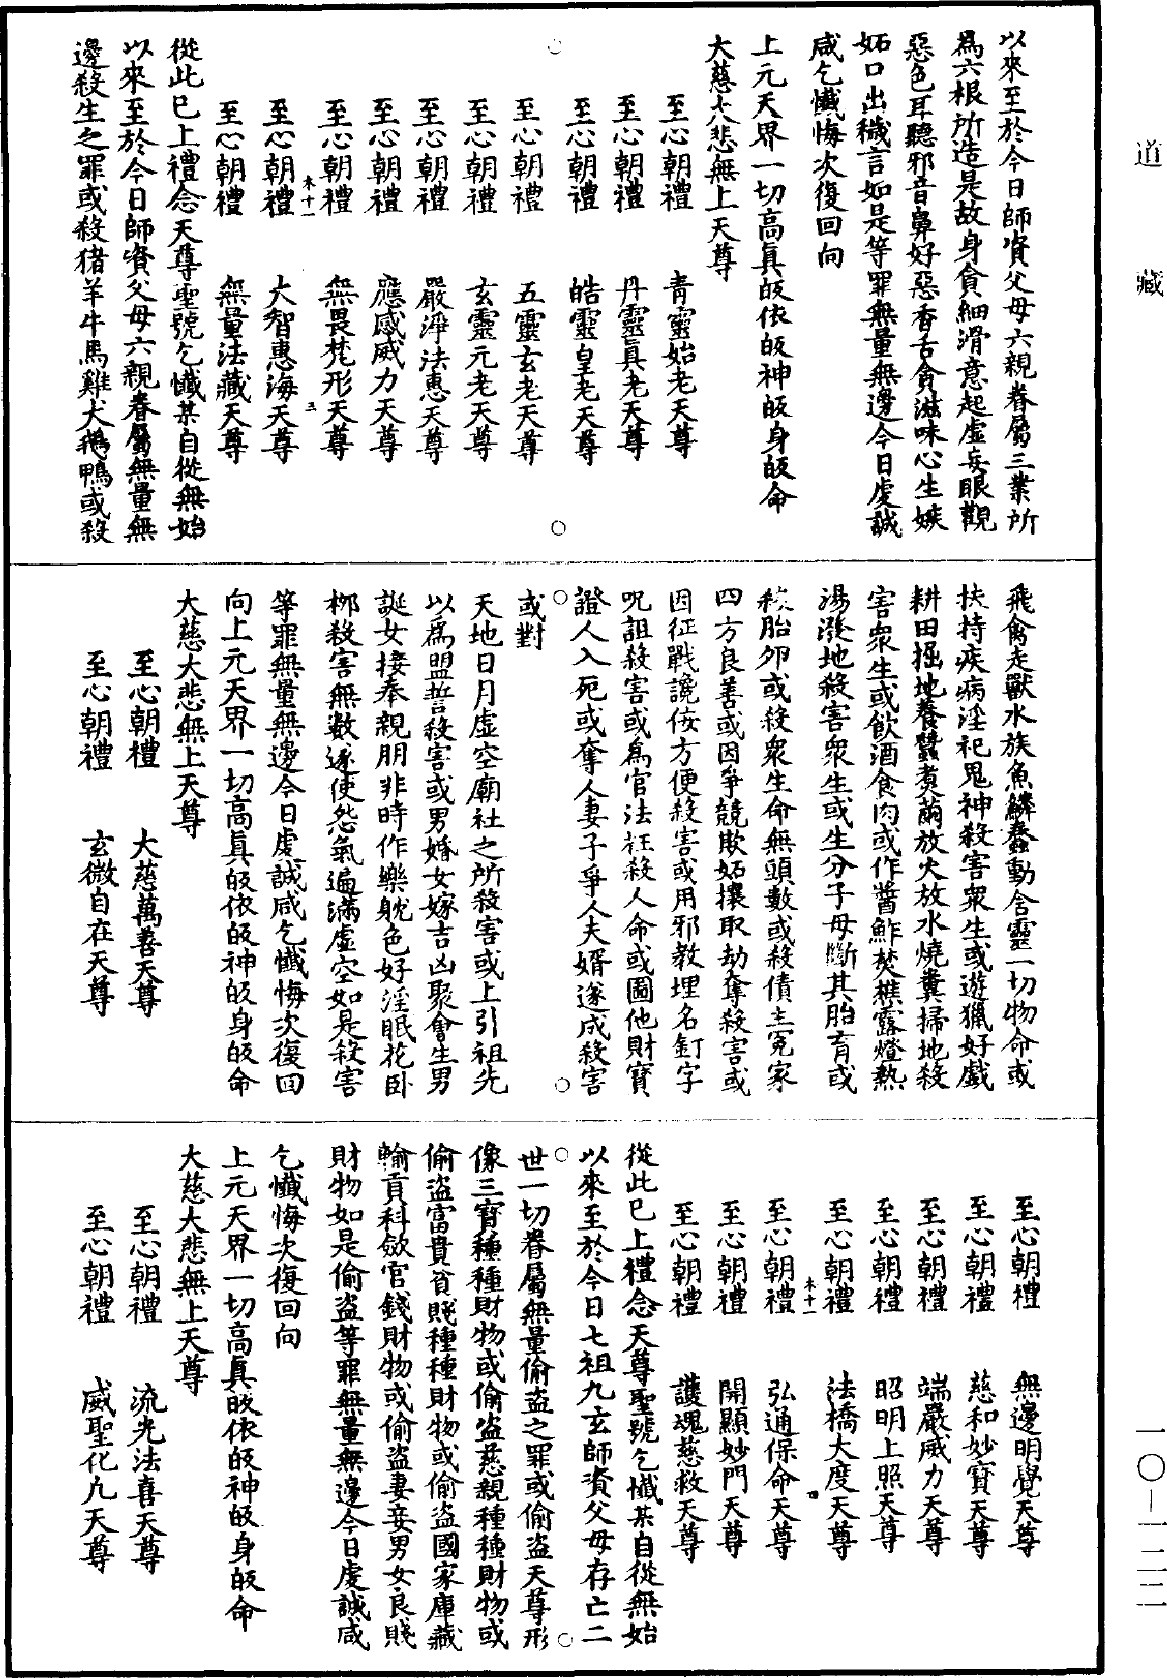 道藏
以來至於今日師資父母六親眷屬三業所
爲六根所造是故身貪細滑意起虛妄眼觀
惡色耳聽邪音鼻好惡香舌貪滋味心生嫉
妬口出穢言如是等罪無量無邊今日虔誠
咸乞懺悔次復回向
上元天界一切高眞皈依皈神皈身皈命
大慈大悲無上天尊
至心朝禮　青靈始老天尊
至心朝禮　丹靈眞老天尊
至心朝禮　皓靈皇老天尊
至心朝禮　五靈玄老天尊
至心朝禮　玄靈元老天尊
至心朝禮　嚴淨法惠天尊
至心朝禮　應感威力天尊
至心朝禮　無畏梵形天尊
木十一　三
至心朝禮　大智惠海天尊
至心朝禮　無量法藏天尊
從此已上禮念天尊聖號乞懺某自從無始
以來至於今日師資父母六親眷屬無量無
邊殺生之罪或殺猪羊牛馬雞犬鵝鴨或殺
飛禽走獸水族魚鱗蠢動含靈一切物命或
扶持疾病淫祀鬼神殺害衆生或遊獵好戲
耕田掘地養蠶煑繭放火放水燒糞掃地殺
害衆生或飲酒食肉或作醬鮓焚樵露燈熱
湯潑地殺害衆生或生分子母斷其胎育或
殺胎卵或殺衆生命無頭數或殺債主冤家
四方良善或因爭競欺妬攘取劫奪殺害或
因征戰讒佞方便殺害或用邪教埋名釘字
呪詛殺害或爲官法枉殺人命或圖他財寶
證人入死或奪人妻子爭人夫婿遂成殺害
或對
天地日月虛空廟社之所殺害或上引祖先
以爲盟誓殺害或男婚女嫁吉凶聚會生男
誕女接奉親朋非時作樂躭色好淫眠花臥
柳殺害無數遂使怨氣遍滿虛空如是殺害
等罪無量無邊今日虔誠咸乞懺悔次復回
向上元天界一切高眞皈依皈神皈身皈命
大慈大悲無上天尊
至心朝禮　大慈萬善天尊
至心朝禮　玄微自在天尊
至心朝禮　無邊明覺天尊
至心朝禮　慈和妙寶天尊
至心朝禮　端嚴威力天尊
至心朝禮　昭明上照天尊
至心朝禮　法橋大度天尊
木十一　四
至心朝禮　弘通保命天尊
至心朝禮　開顯妙門天尊
至心朝禮　護魂慈救天尊
從此已上禮念天尊聖號乞懺某自從無始
以來至於今日七祖九玄師資父母存亡二
世一切眷屬無量偷盜之罪或偷盜天尊形
像三寶種種財物或偷盜慈親種種財物或
偷盜富貴貧賤種種財物或偷盜國家庫藏
輸貢科歛官錢財物或偷盜妻妾男女良賤
財物如是偷盜等罪無量無邊今日虔誠咸
乞懺悔次復回向
上元天界一切高眞皈依皈神皈身皈命
大慈大悲無上天尊
至心朝禮　流光法喜天尊
至心朝禮　威聖化九天尊
一〇—一二二